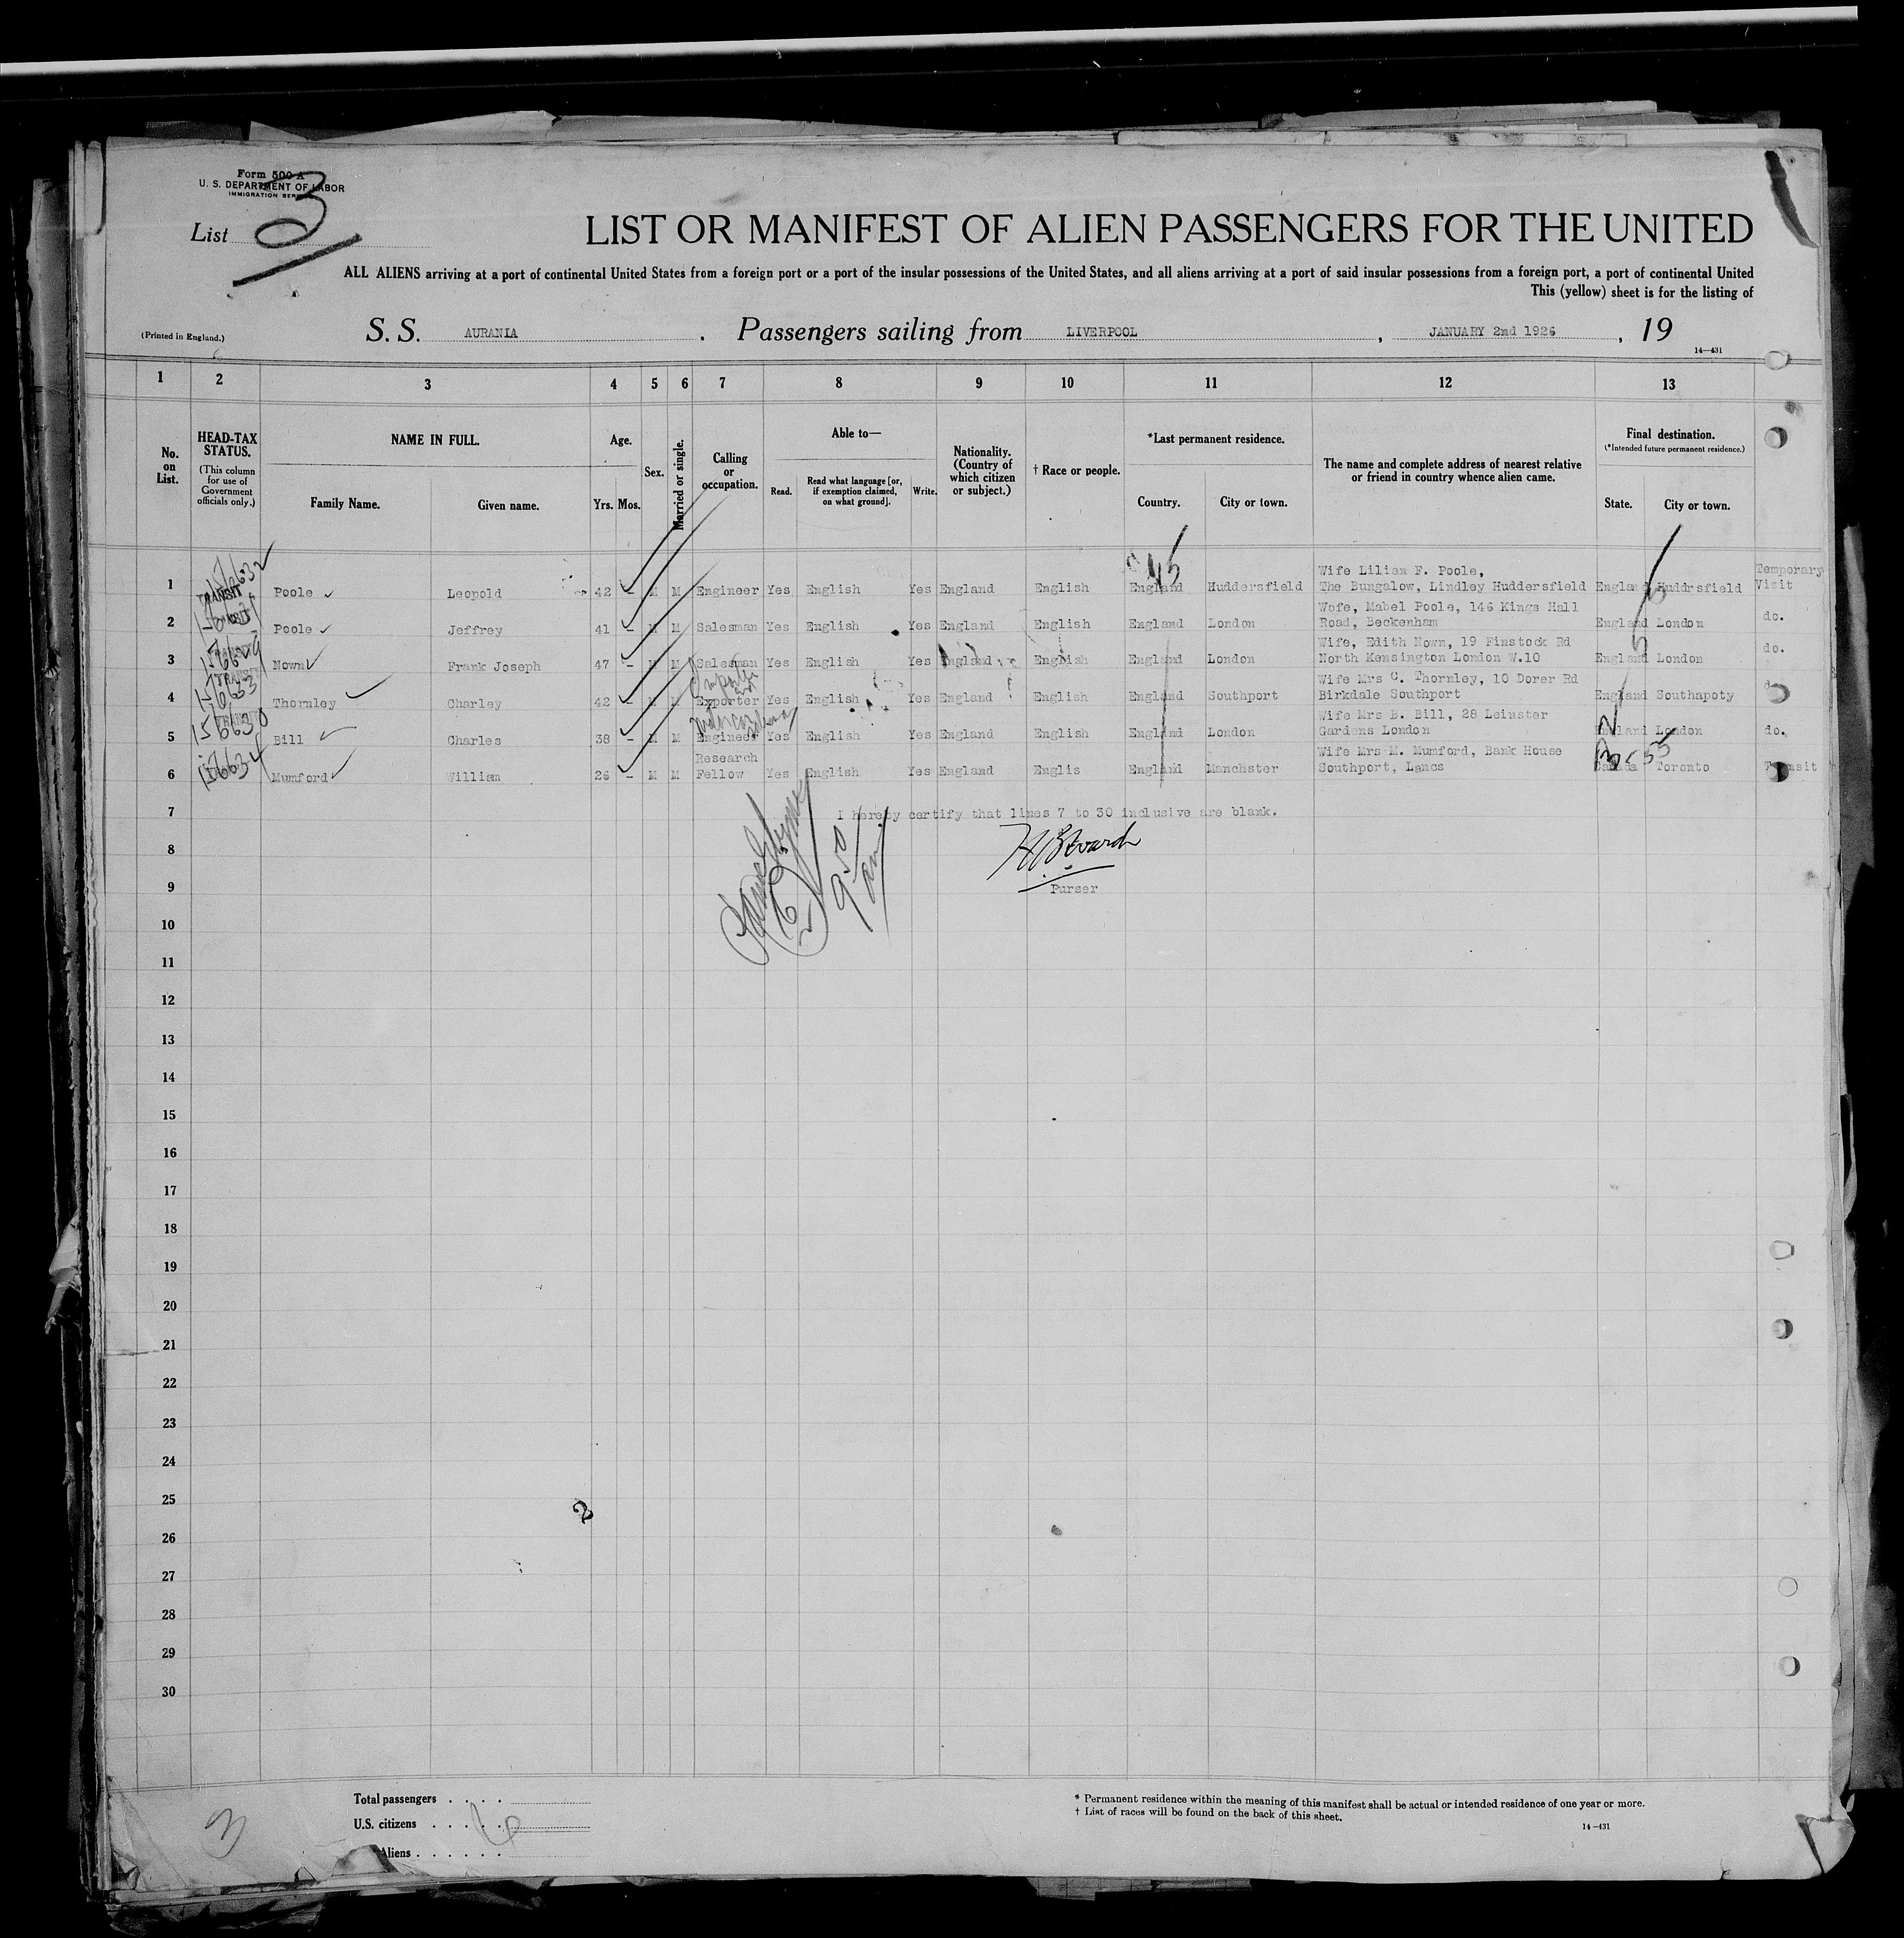 Form 500 A
U. S. DEPARTMENT OF LABOR
IMMIGRATION SERVICE
List 3
LIST OR MANIFEST OF ALIEN PASSENGERS FOR THE UNITED
ALL ALIENS arriving at a port of continental United States from a foreign port or a port of the insular possessions of the United States, and all aliens arriving at a port of said insular possessions from a foreign port, a port of continental United
This (yellow) sheet is for the listing of
(Printed in England.)
S. S. AURANIA . Passengers sailing from LIVERPOOL , JANUARY 2nd 1926 , 19
14—431
1 2 3 4 5 6 7 8 9 10 11 12 13
No. on List.
HEAD-TAX STATUS.
(This column for use of Government officials only.)
NAME IN FULL.
Family Name. Given name.
Age.
Yrs. Mos.
Sex.
Married or single.
Calling or occupation.
Able to—
Read. Read what language [or, if exemption claimed, on what ground]. Write.
Nationality. (Country of which citizen or subject.)
† Race or people.
*Last permanent residence.
Country. City or town.
The name and complete address of nearest relative or friend in country whence alien came.
Final destination.
(*Intended future permanent residence.)
State. City or town.
45
Wife Lilian F. Poole, Temporary
1 TRANSIT Poole Leopold 42 - M M Engineer Yes English Yes England English England Huddersfield The Bungalow, Lindley Huddersfield England Huddrsfield Visit
Wofe, Mabel Poole, 146 Kings Hall
2 Poole Jeffrey 41 - M M Salesman Yes English Yes England English England London Road, Beckenham England London do.
Wife, Edith Nown, 19 Finstock Rd
3 Nown Frank Joseph 47 - M M Salesman Yes English Yes England English England London North Kensington London W.10 England London do.
Wife Mrs C. Thornley, 10 Dorer Rd
4 Thornley Charley 42 - M M Exporter Yes English Yes England English England Southport Birkdale Southport England Southapoty
Wife Mrs B. Bill, 28 Leinster
5 Bill Charles 38 - M M Engineer Yes English Yes England English England London Gardens London England London do.
Research Wife Mrs M. Mumford, Bank House
6 Mumford William 26 - M M Fellow Yes English Yes England Englis England Manchster Southport, Lancs Canada Toronto Transit
7 I hereby certify that lines 7 to 30 inclusive are blank.
8
9 Purser
9.50 am
10
11
12
13
14
15
16
17
18
19
20
21
22
23
24
25
2
26
27
28
29
30
Total passengers . . . .
U.S. citizens . . . . . 6
Aliens . . . . . .
3
* Permanent residence within the meaning of this manifest shall be actual or intended residence of one year or more.
† List of races will be found on the back of this sheet.
14—431